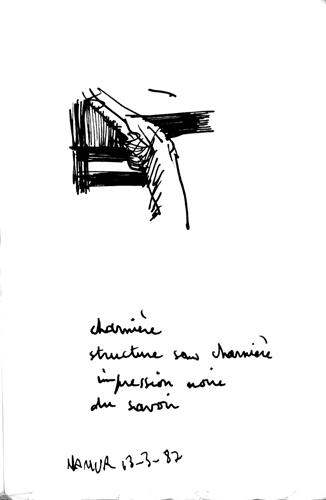 charnière
structure sans charnière
impression noire
du savoir
NAMUR 13-3-87